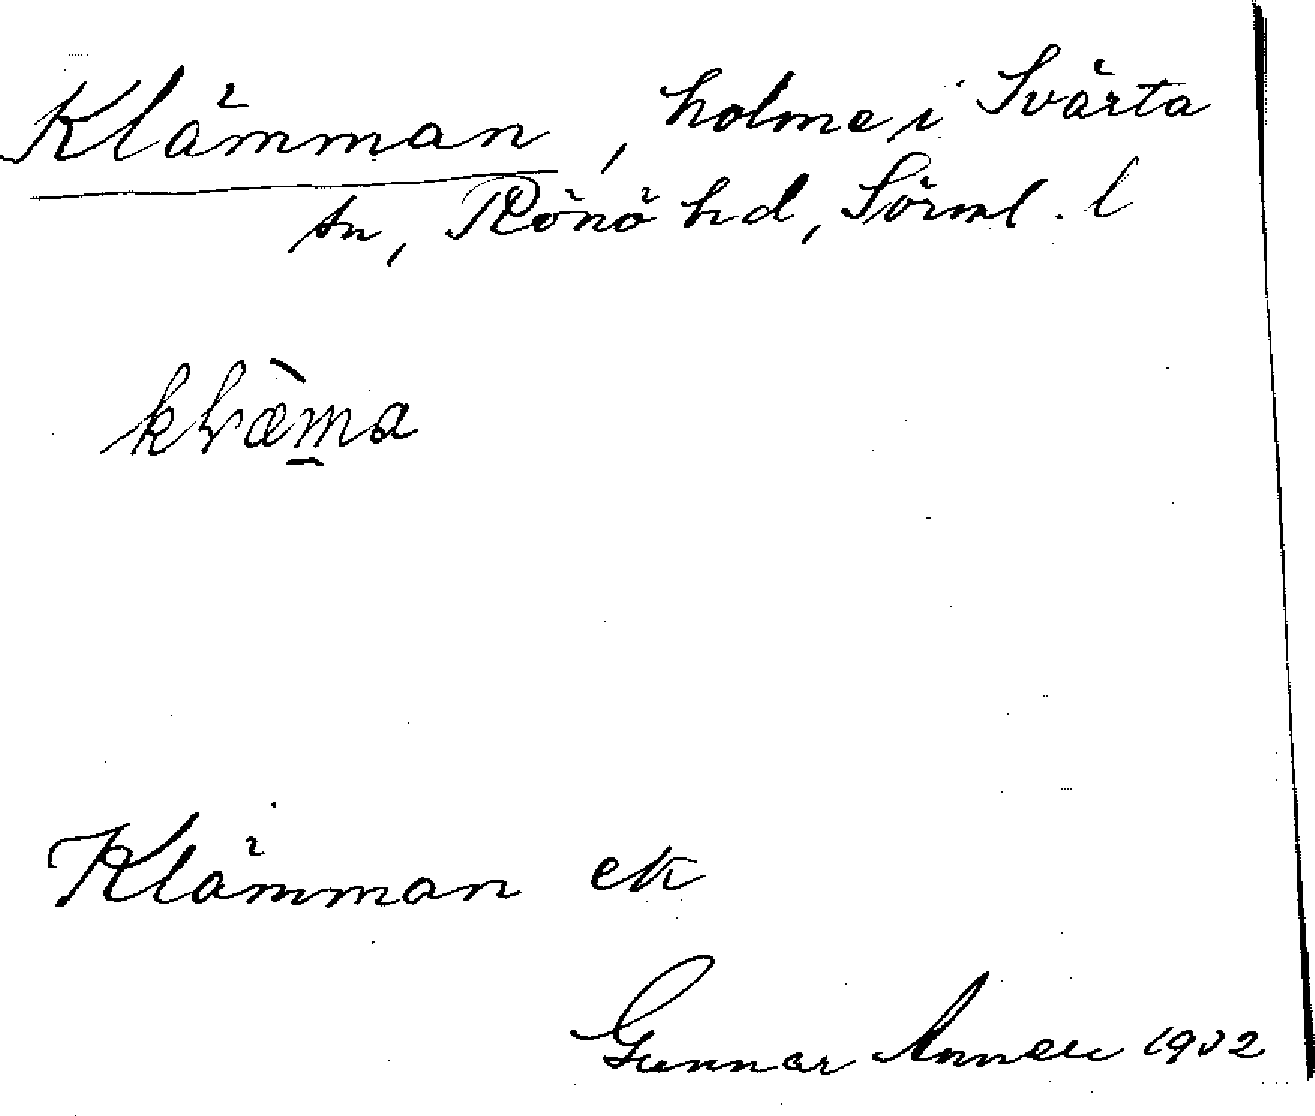 Klämman, holme i Svärta
sn, Rönö hd, Sörml. l
klæ̀ma
Klämman ek
Gunnar 1902